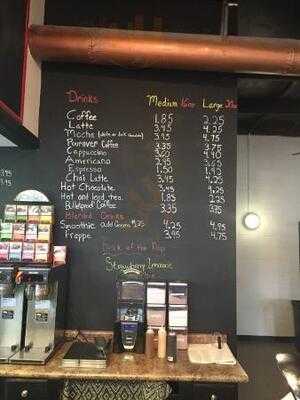 Drinks Medium 16oz Large 20oz
Coffee 1.85 2.25
Latte 3.45 4.25
Mocha 3.95 4.75
Pourover Coffee 3.35 3.75
Cappuccino 4.40
Americano 3.65
Espresso 1.50
Chai Latte 3.45 4.25
Hot Chocolate 3.45 4.25
Hot and Iced tea 1.85 2.25
Bulletproof Coffee 3.35 3.75
Blended Drinks
Smoothie add Greens 4.25 4.95
Frappe 3.95 4.75
Drink of the Day
Strawberry Lemonade